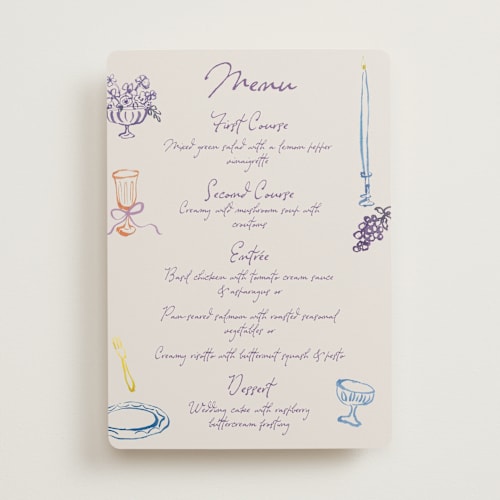 Menu
First Course
Mixed green salad with a lemon pepper
vinaigrette
Second Course
Creamy wild mushroom soup with
croutons
Entrée
Basil chicken with tomato cream sauce
& asparagus or
Pan-seared salmon with roasted seasonal
vegetables or
Creamy risotto with butternut squash & pesto
Dessert
Wedding cake with raspberry
buttercream frosting